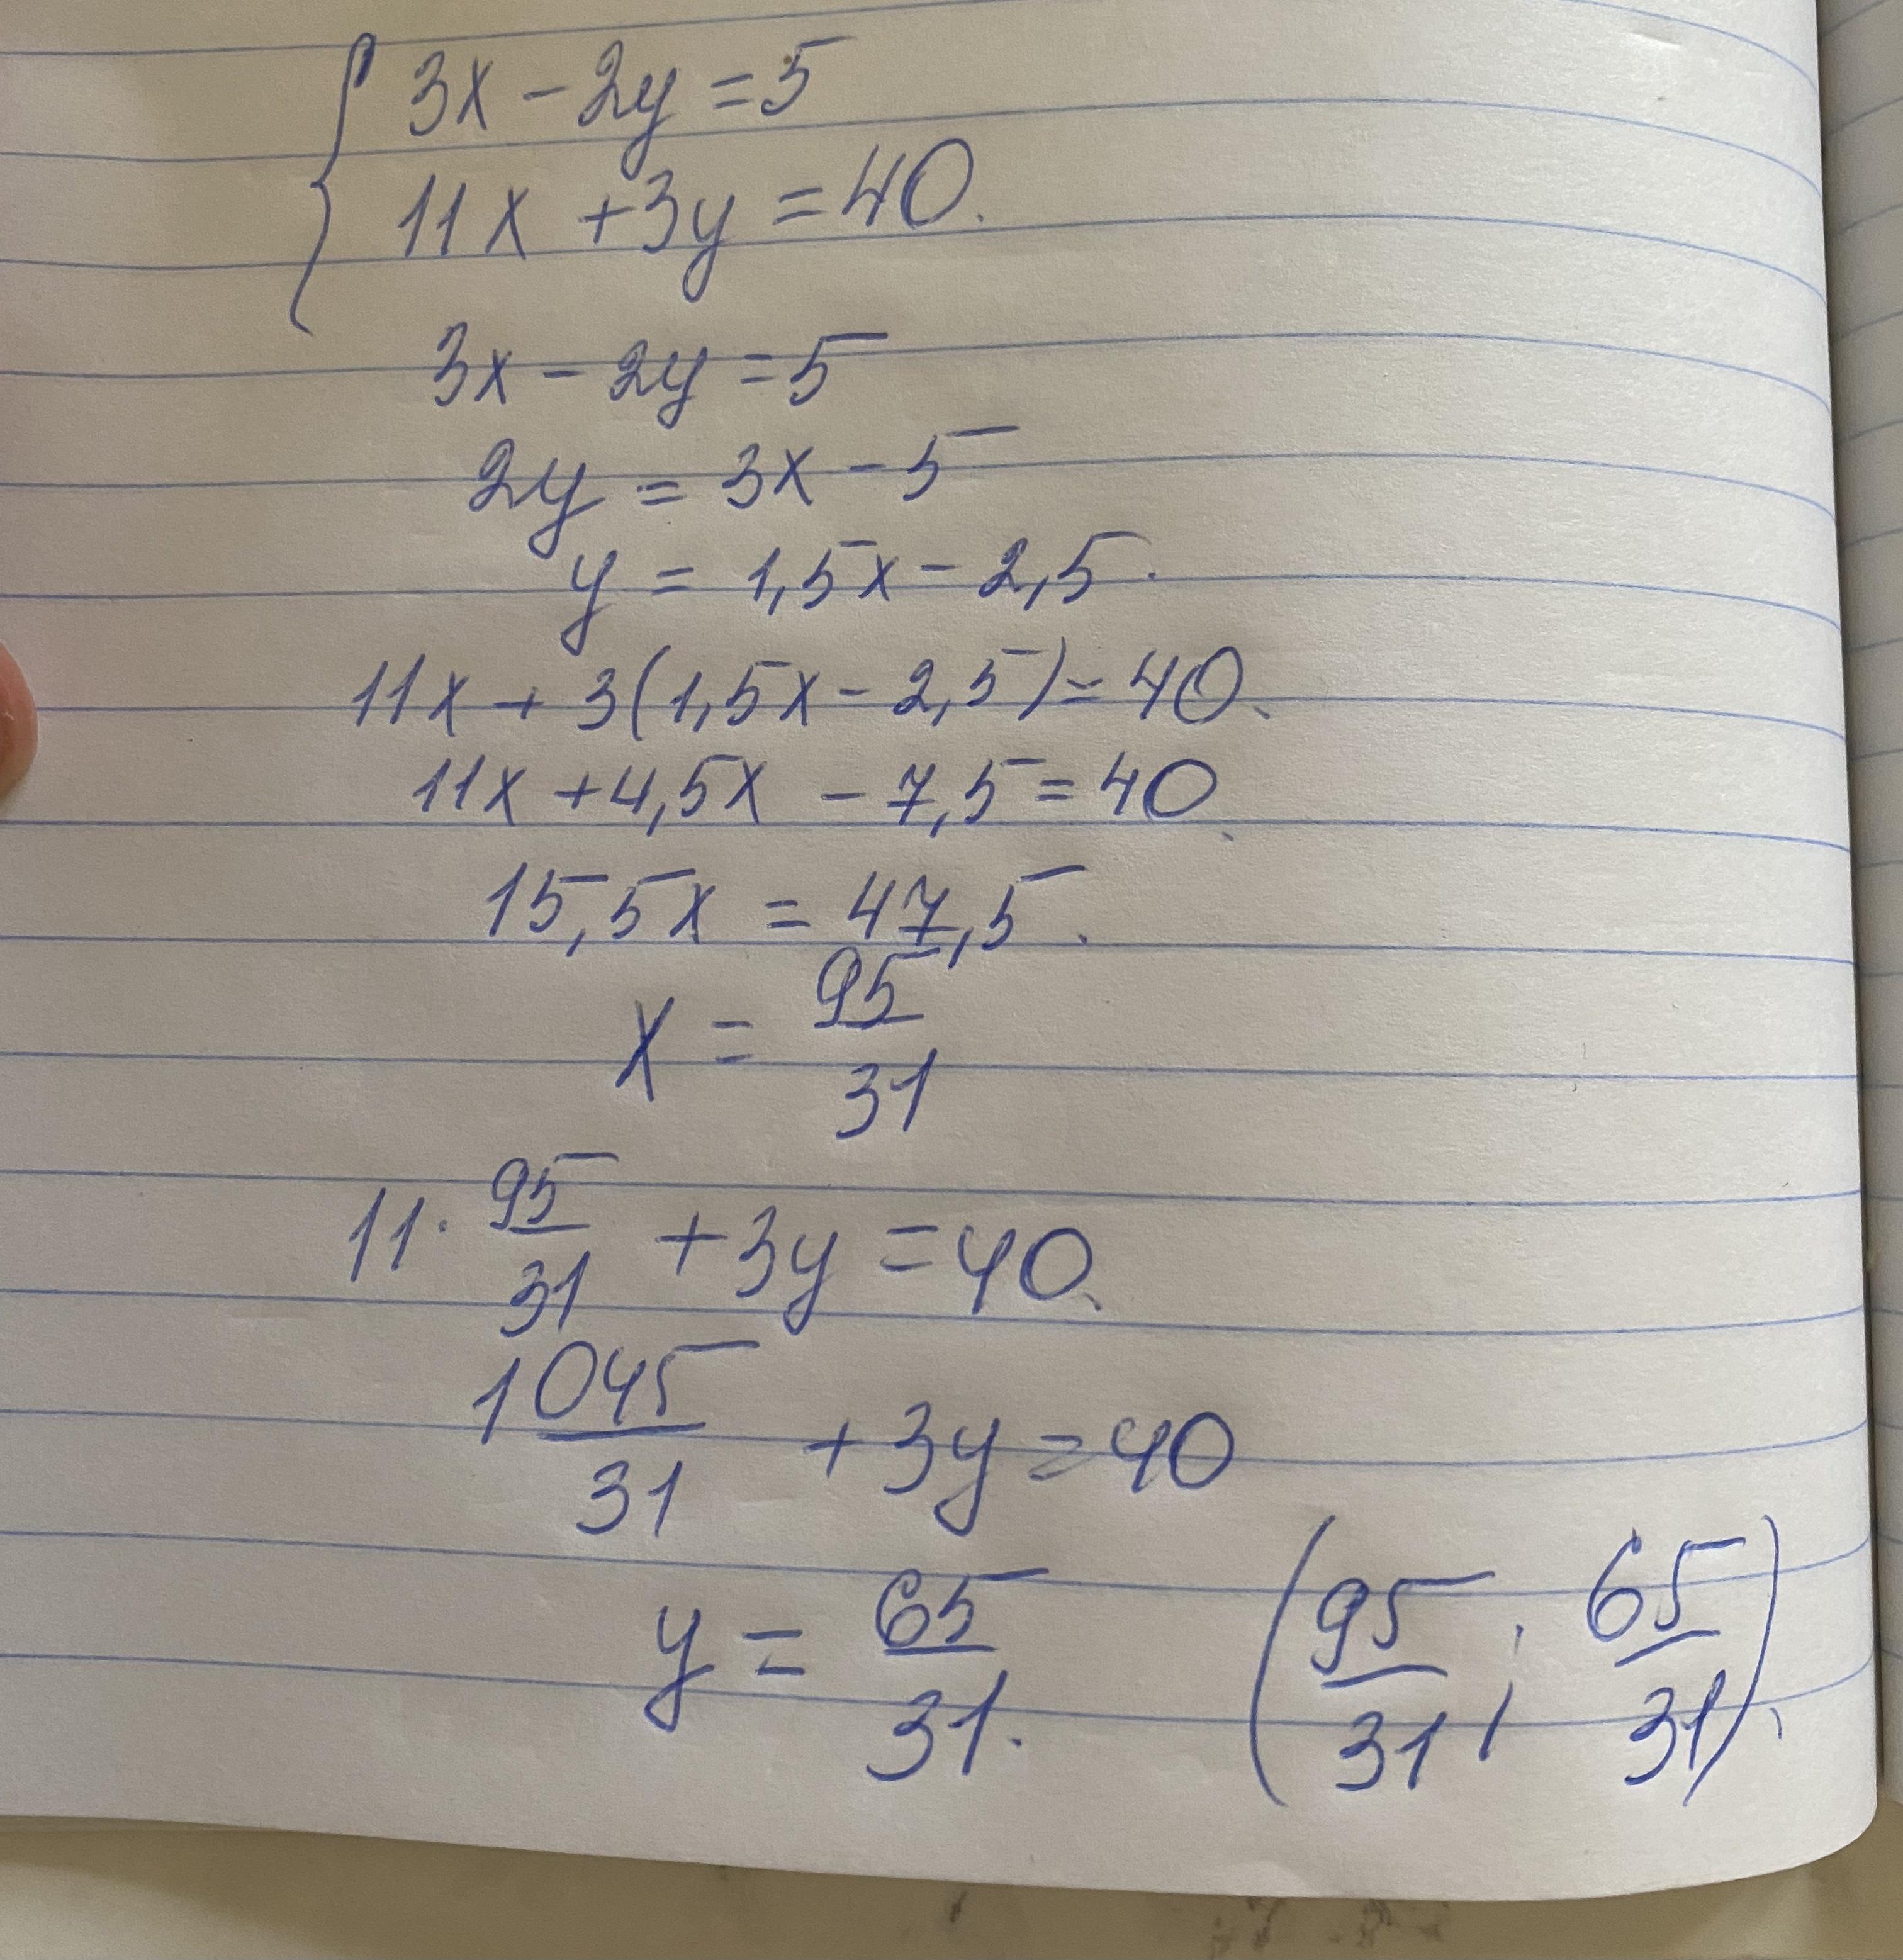 3x - 2y = 5
11x + 3y = 40.
3x - 2y = 5
2y = 3x - 5
y = 1,5x - 2,5.
11x + 3(1,5x - 2,5) = 40.
11x + 4,5x - 7,5 = 40.
15,5x = 47,5.
x = 95/31
11 · 95/31 + 3y = 40.
1045/31 + 3y = 40
y = 65/31. (95/31; 65/31).